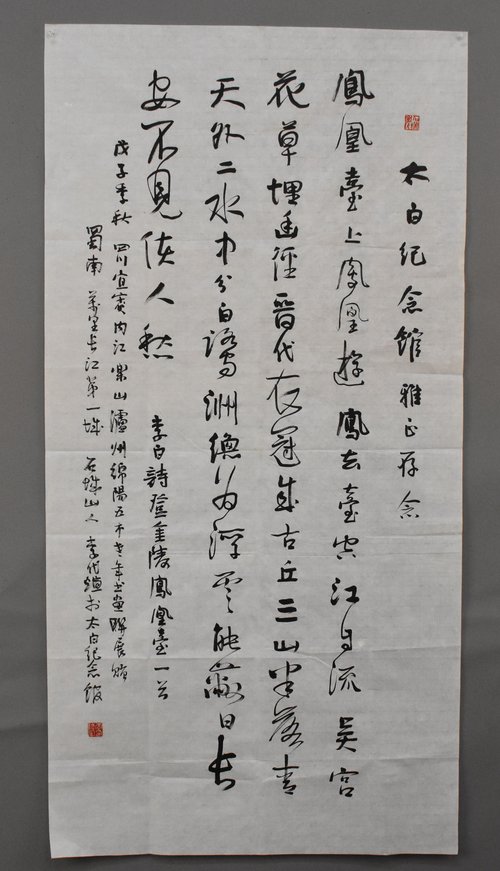 太白纪念馆 雅正存念
鳳凰臺上鳳凰遊鳳去臺空江自流吴宫
花草埋幽徑晋代衣冠成古丘三山半落青
天外二水中分白鹭洲總为浮雲能蔽日长
安不見使人愁 李白詩登金陵鳳凰臺一首
戊子季秋 四川宜宾内江樂山瀘州綿陽五市老年书画联展
蜀南 萬里长江第一城 石城山人 李 书 太白纪念館